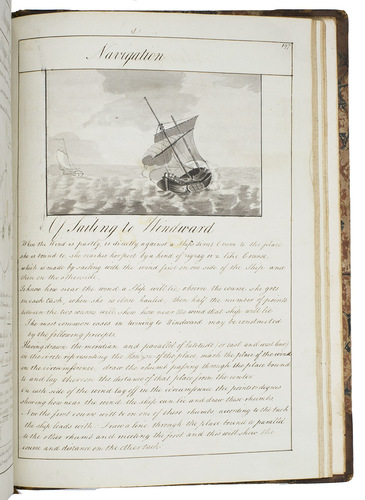 197
Navigation
Of Sailing to Windward
When the wind is partly, or directly against a Ships direct Course to the place
she is bound to. She reaches her port by a kind of zigzag or Z like Course,
which is made by sailing with the wind first on one side of the Ship, and
then on the other side.
To know how near the wind a Ship will lie, observe the course she goes
in each tack, when she is close hauled, then half the number of points
between the two courses will shew how near the wind that ship will lie
The most common cases in turning to Windward may be constructed
by the following precepts.
Having drawn the meridian and parallel of latitude (or east and west line)
in the circle representing the Horizon of the place, mark the place of the wind
in the circumference, draw the rhumb passing through the place bound
to and lay thereon the distance of that place from the center
On each side of the wind lay off in the circumference the points or degrees
shewing how near the wind the ship can lie and draw these rhumbs.
Now the first course will be on one of these rhumbs according to the tack
the ship leads with. Draw a line through the place bound to parallel
to the other rhumb and meeting the first and this will shew the
course and distance on the other tack.